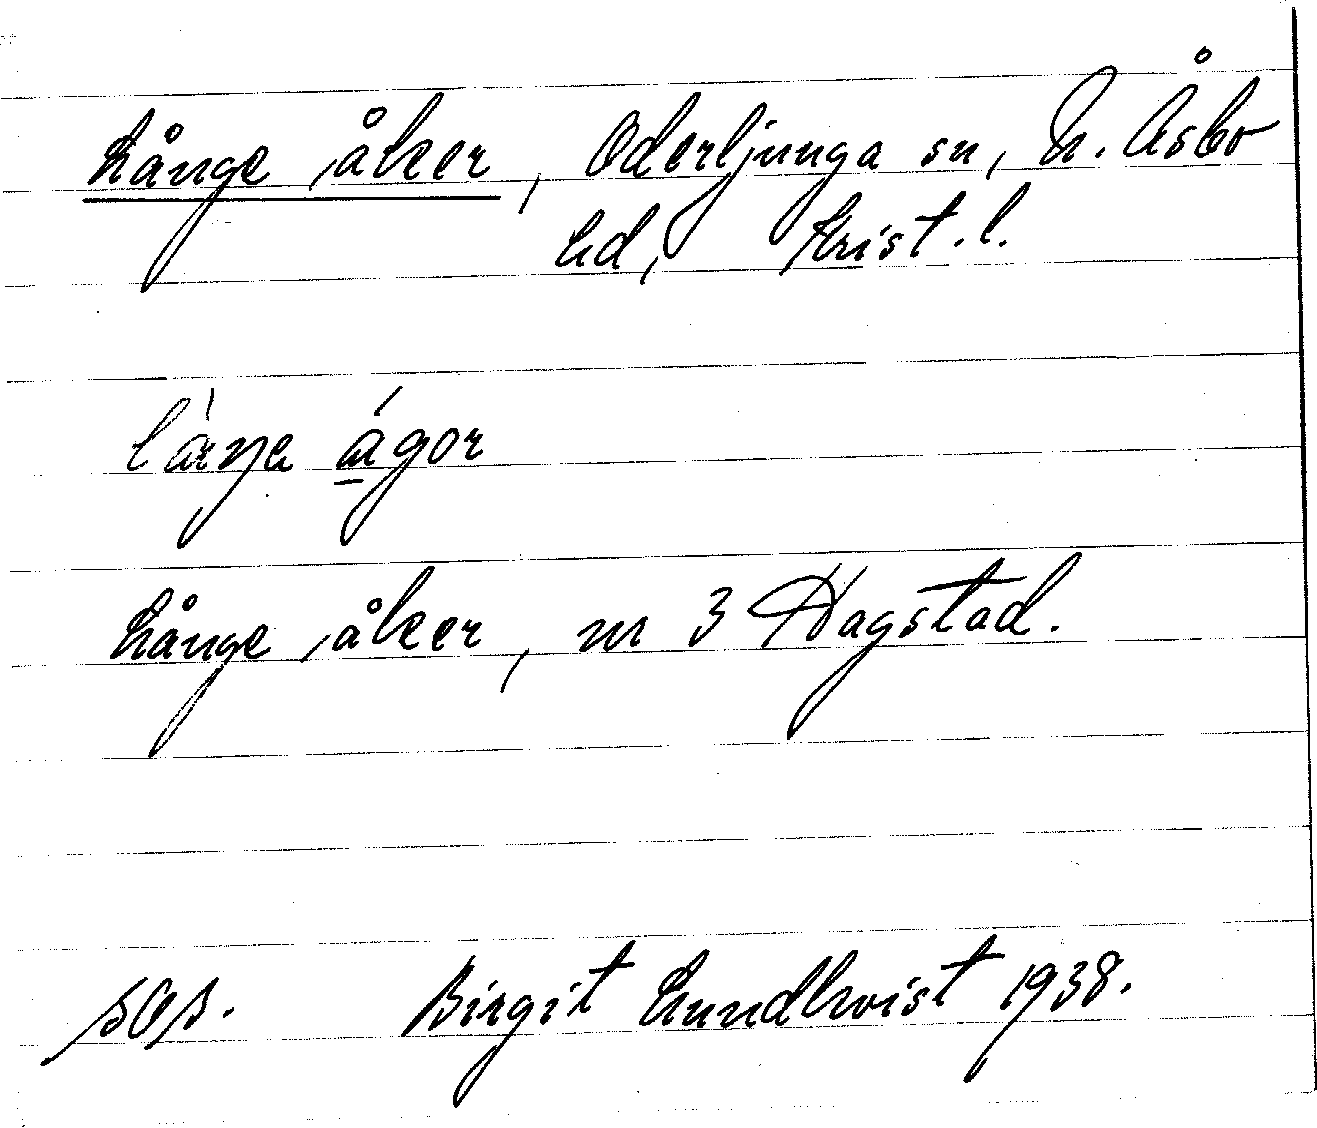 Långe åker, Oderljunga sn, N. Åsbo
hd, Krist. l.
låŋa ågor
Långe åker, nr 3 Hagstad.
SOA.
Birgit Lundkvist 1938.